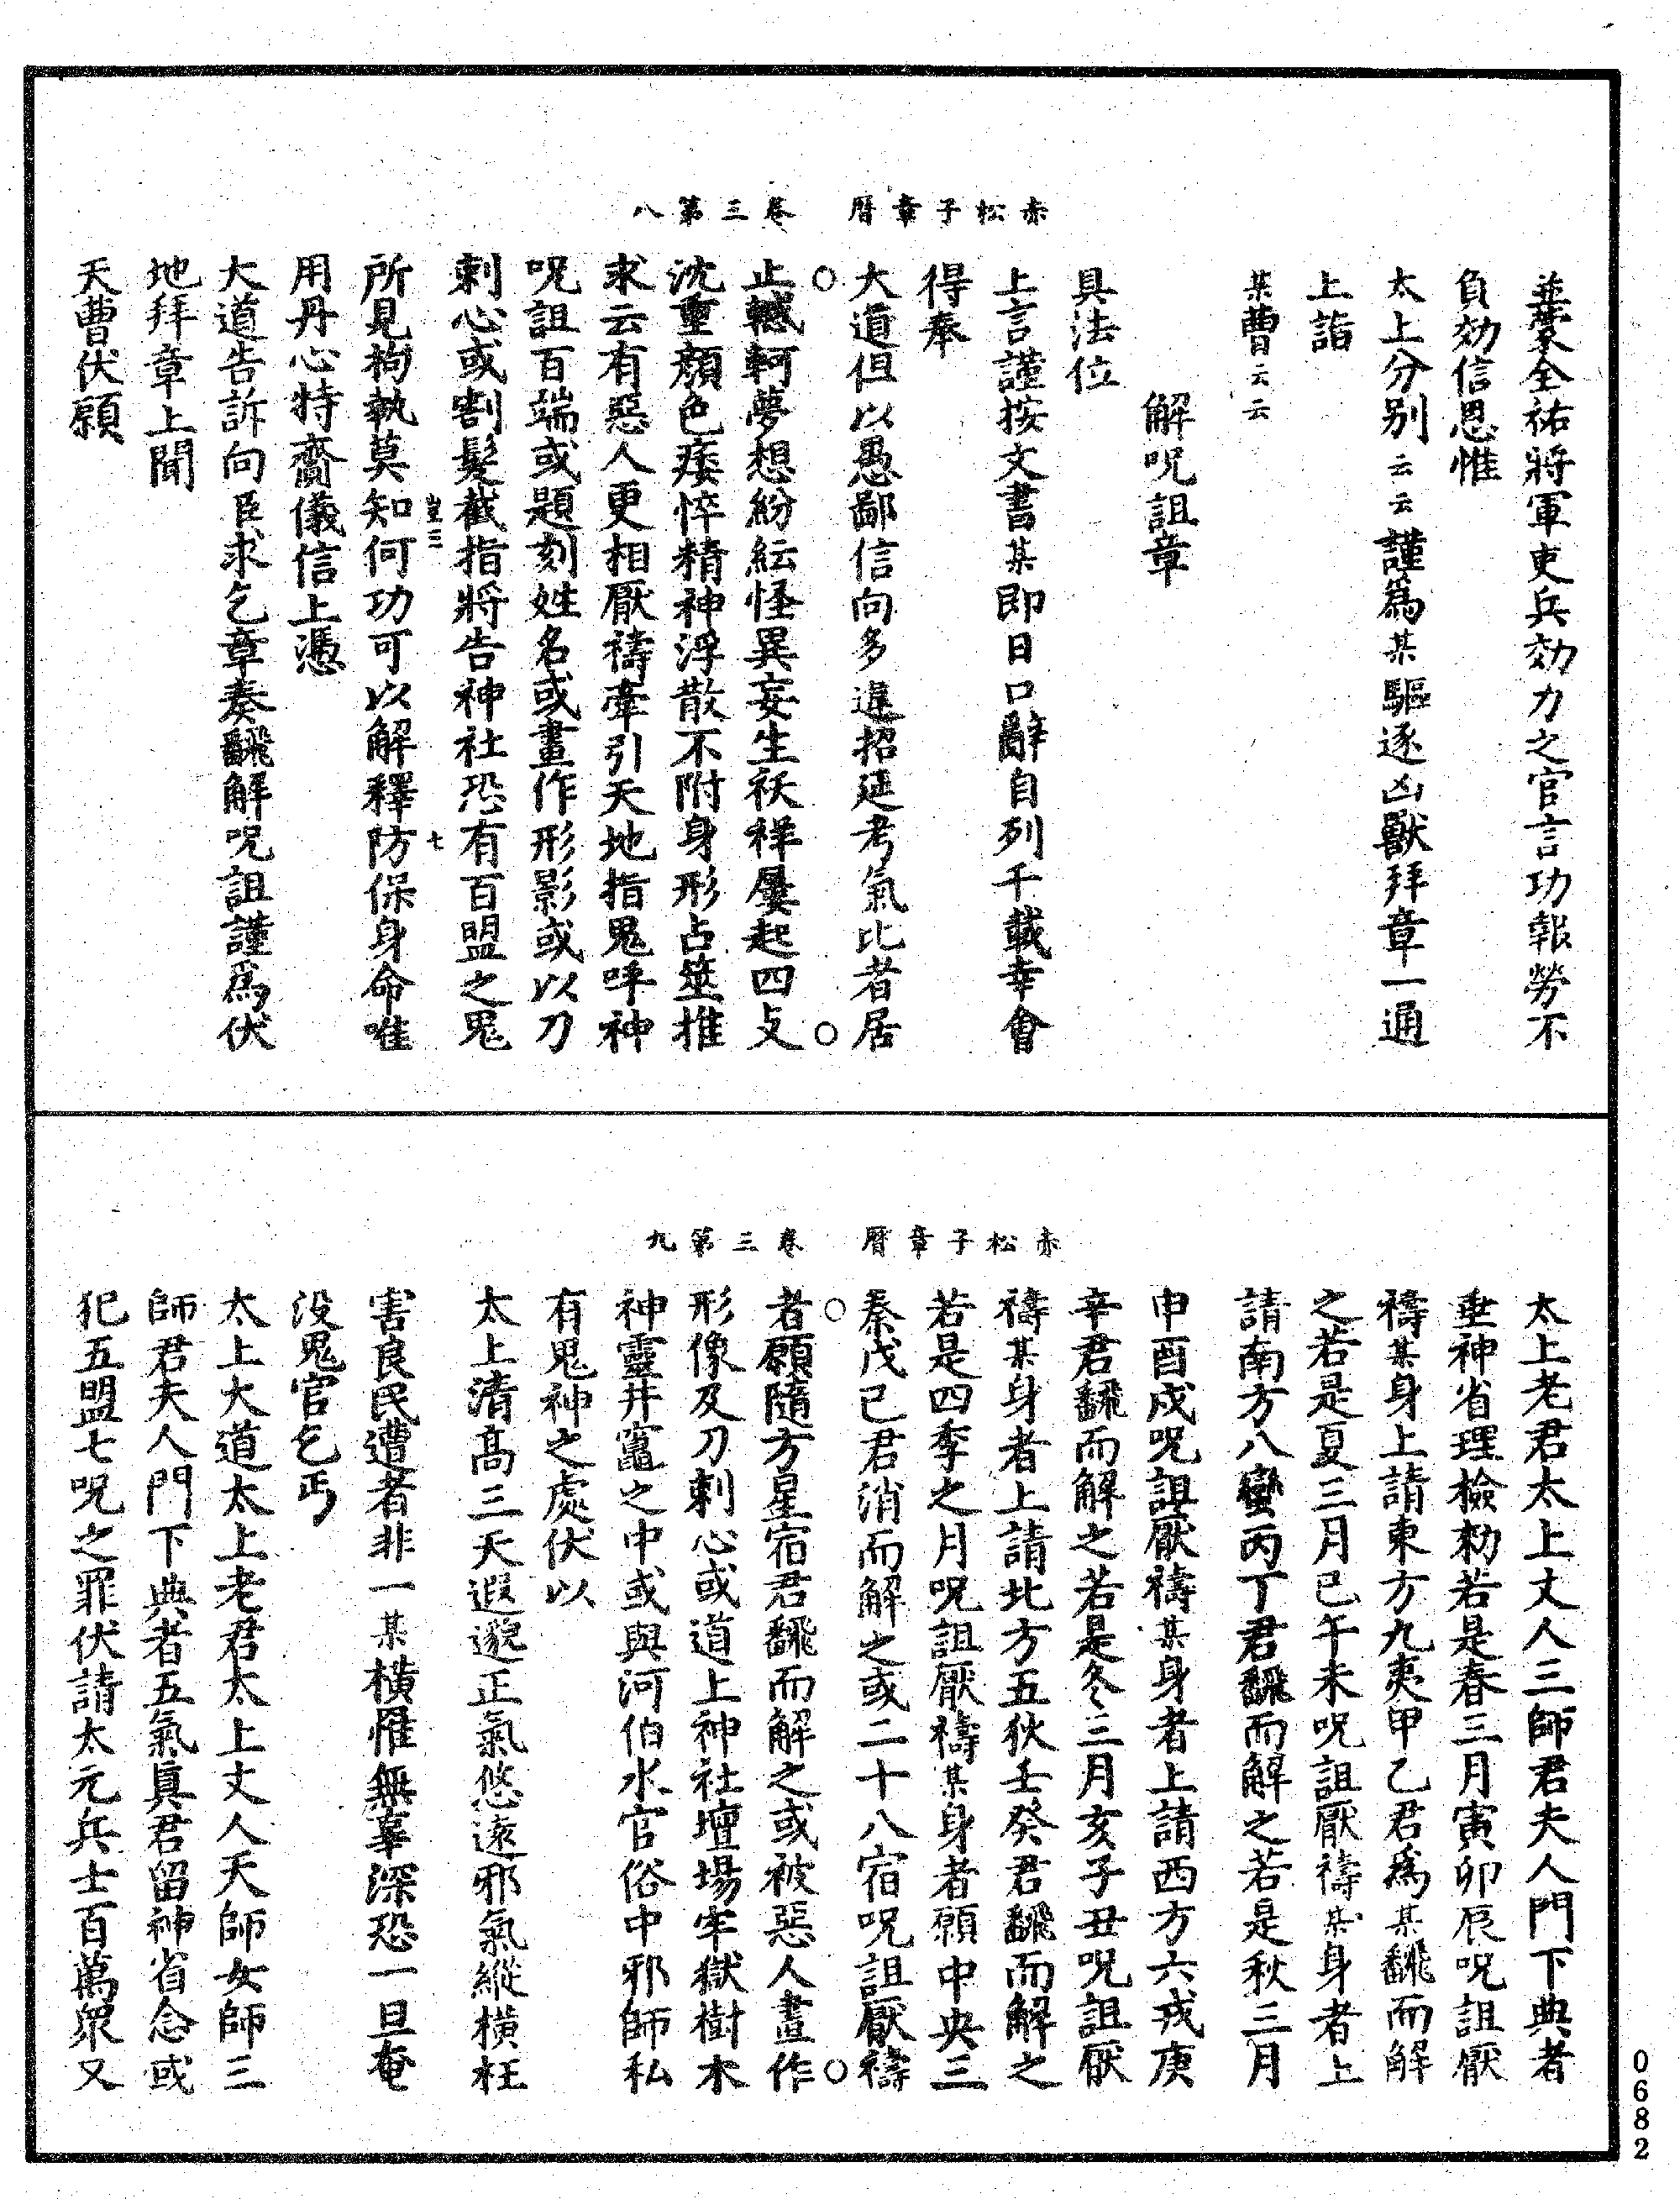 赤松子章曆　卷三第八
並蒙全祐將軍吏兵効力之官言功報勞不
負効信恩惟
太上分別云云謹為某驅逐凶獸拜章一通
上詣
某曹云云
解呪詛章
具法位
上言謹按文書某即日口辭自列千載幸會
得奉
大道但以愚鄙信向多違招延考氣比者居
止轗軻夢想紛紜怪異妄生祅祥屢起四支
沈重顏色痿悴精神浮散不附身形占筮推
求云有惡人更相厭禱牽引天地指鬼呼神
呪詛百端或題刻姓名或畫作形影或以刀
刺心或割髮截指將告神社恐有百盟之鬼
皇三　七
所見拘執莫知何功可以解釋防保身命唯
用丹心特齎儀信上憑
大道告訴向臣求乞章奏飜解呪詛謹為伏
地拜章上聞
天曹伏願
赤松子章曆　卷三第九
太上老君太上丈人三師君夫人門下典者
垂神省理檢勑若是春三月寅卯辰呪詛厭
禱某身上請東方九夷甲乙君為某飜而解
之若是夏三月巳午未呪詛厭禱某身者上
請南方八蠻丙丁君飜而解之若是秋三月
申酉戌呪詛厭禱某身者上請西方六戎庚
辛君飜而解之若是冬三月亥子丑呪詛厭
禱某身者上請北方五狄壬癸君飜而解之
若是四季之月呪詛厭禱某身者願中央三
秦戊己君消而解之或二十八宿呪詛厭禱
者願隨方星宿君飜而解之或被惡人畫作
形像及刀刺心或道上神社壇場牢獄樹木
神靈井竈之中或與河伯水官俗中邪師私
有鬼神之處伏以
太上清高三天遐邈正氣悠遠邪氣縱橫枉
害良民遭者非一某橫罹無辜深恐一旦奄
没鬼官乞丐
太上大道太上老君太上丈人天師女師三
師君夫人門下典者五氣真君留神省念或
犯五盟七呪之罪伏請太元兵士百萬眾又
0682